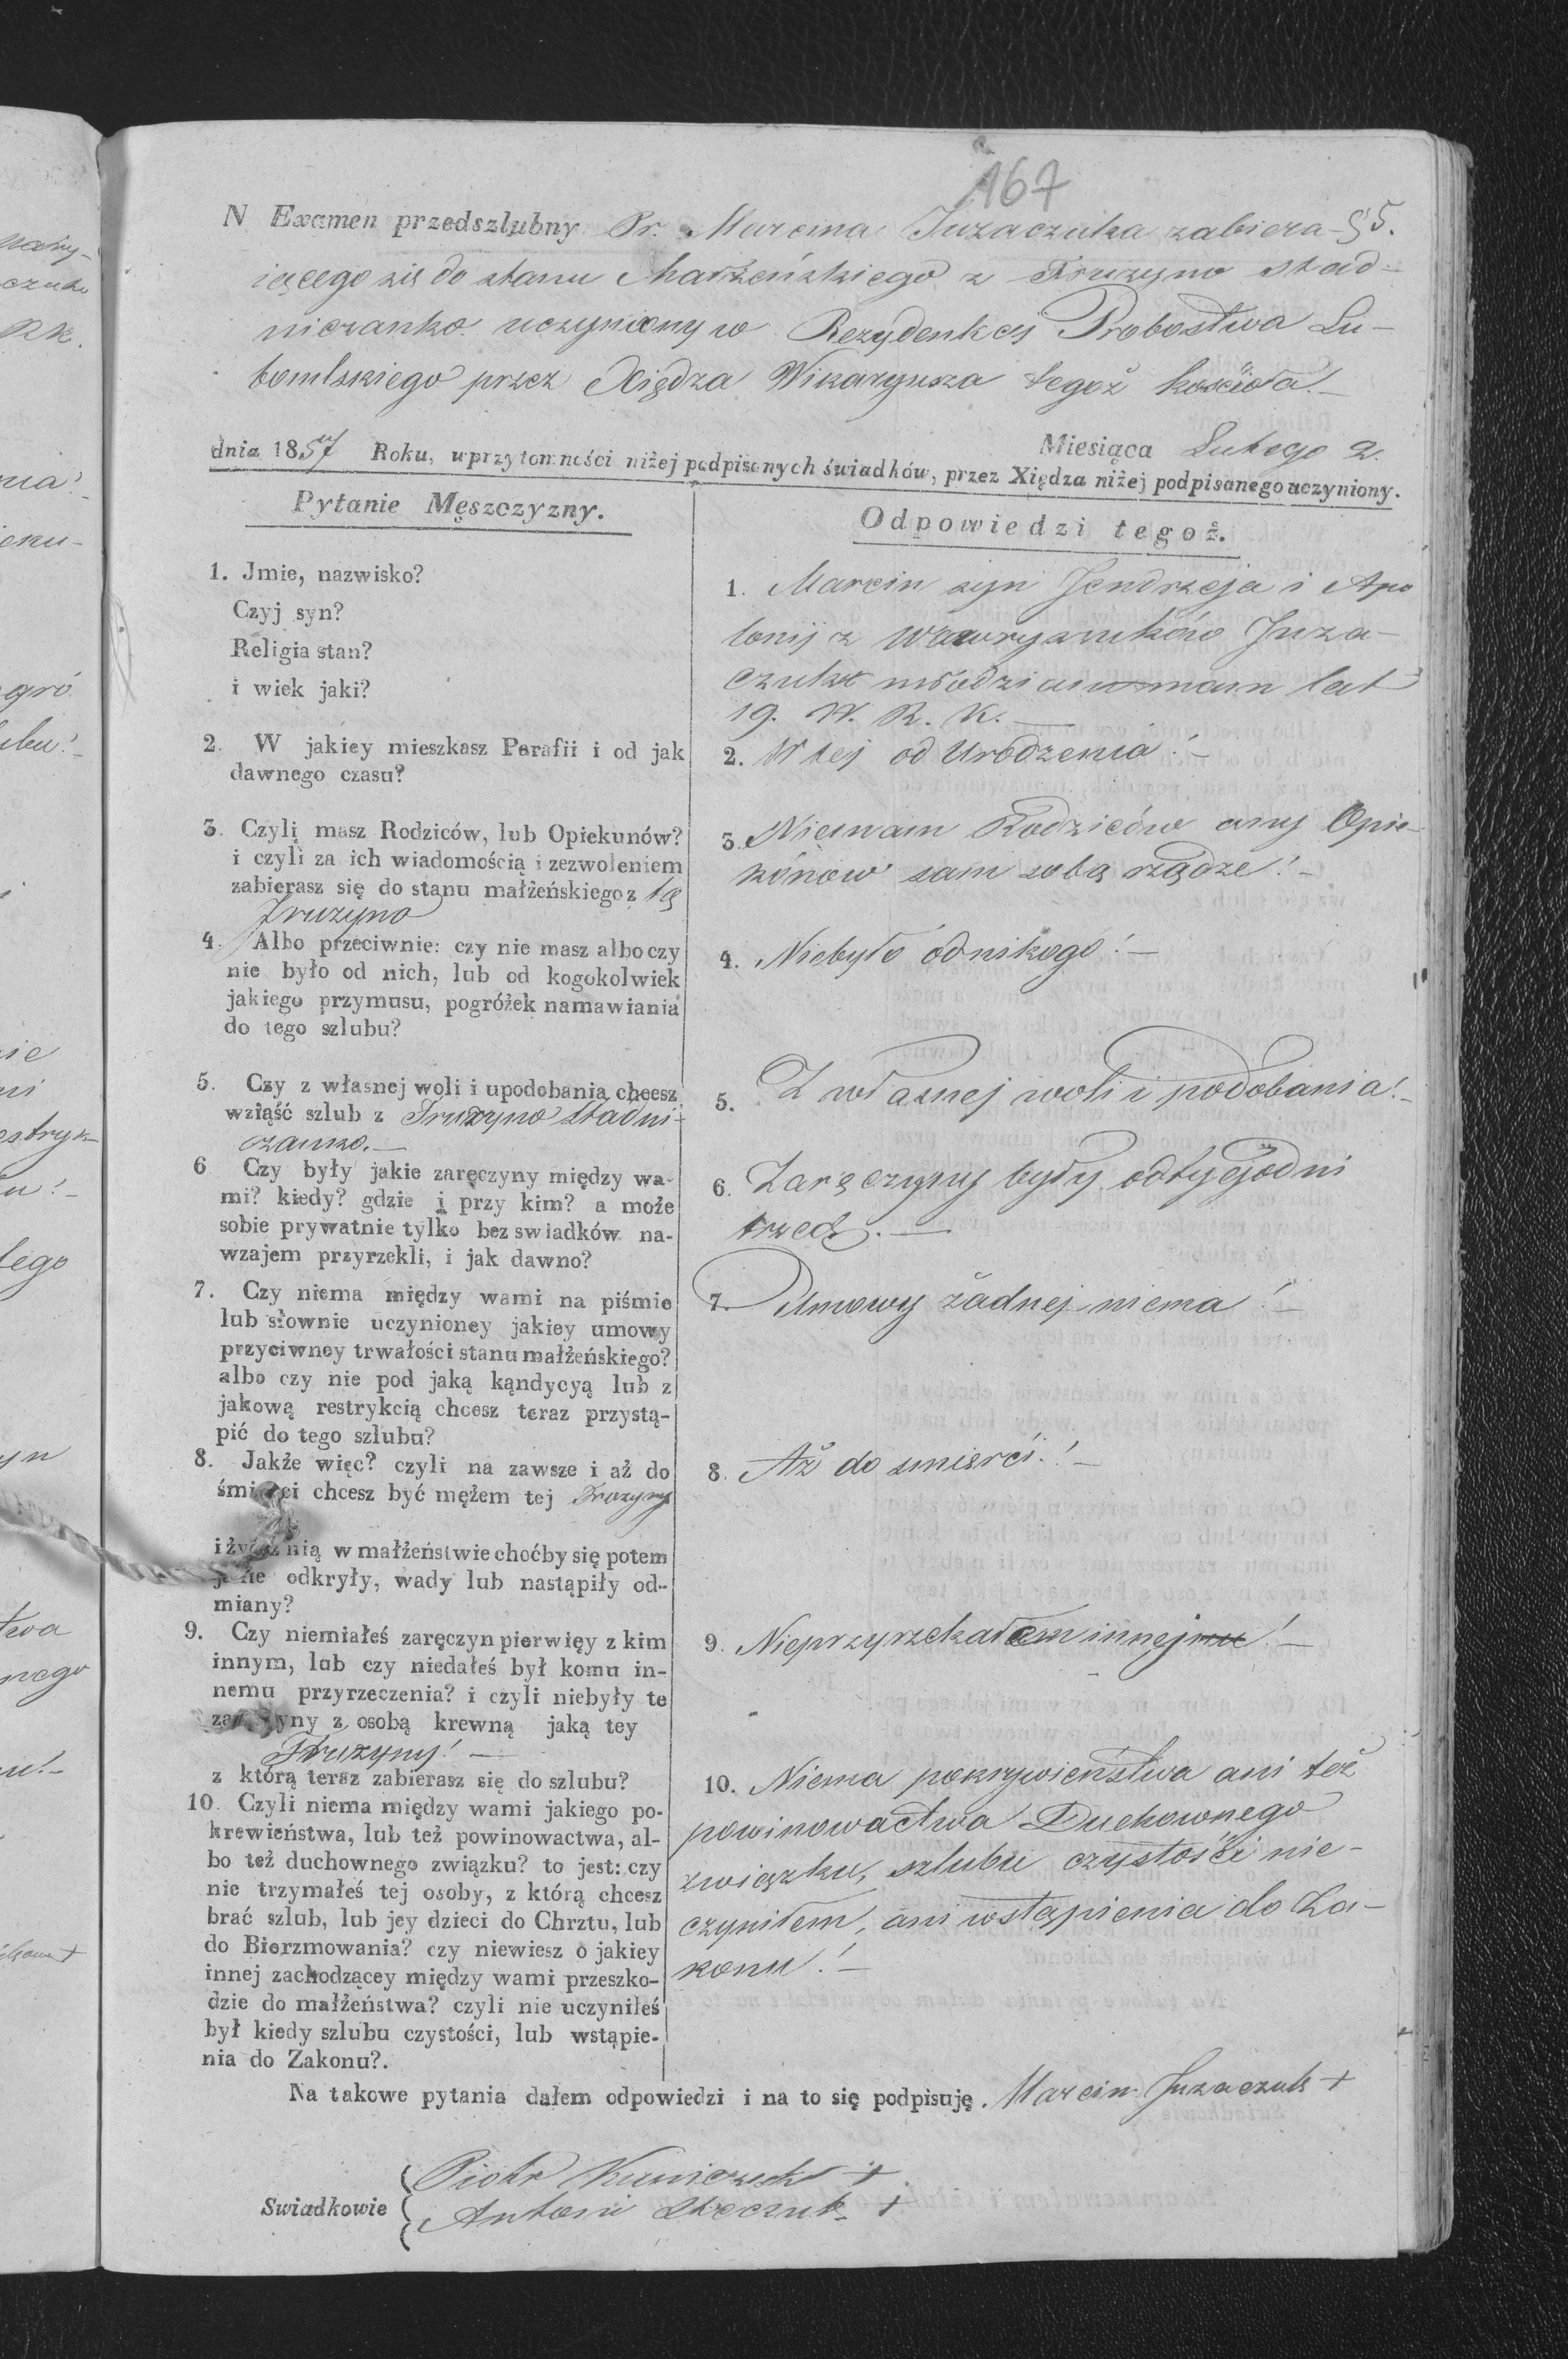 167
N Examen przedszlubny Pr. Marcina Juzaczuka zabiera- § 5.
iącego się do stanu Małżeńskiego z Fruzyno Stad-
niczanko uczyniony w Rezydenkcij Probostwa Lu-
bomlskiego przez Xiędza Wikaryusza tegoż kościoła!-
Miesiąca Lutego 2.
dnia 1857 Roku, w przytomności niżej podpisanych świadków, przez Xiędza niżej podpisanego uczyniony.
Pytanie Męszczyzny.
1. Jmie, nazwisko?
Czyj syn?
Religia stan?
i wiek jaki?
2. W jakiey mieszkasz Parafii i od jak
dawnego czasu?
3. Czyli masz Rodziców, lub Opiekunów?
i czyli za ich wiadomością i zezwoleniem
zabierasz się do stanu małżeńskiego z tą
Fruzyno
4. Albo przeciwnie: czy nie masz albo czy
nie było od nich, lub od kogokolwiek
jakiego przymusu, pogróżek namawiania
do tego szlubu?
5. Czy z własnej woli i upodobania chcesz
wziąść szlub z Fruzyno Stadni-
czanko.-
6 Czy były jakie zaręczyny między wa-
mi? kiedy? gdzie i przy kim? a może
sobie prywatnie tylko bez swiadków na-
wzajem przyrzekli, i jak dawno?
7. Czy niema między wami na piśmie
lub słownie uczynioney jakiey umowy
przyciwney trwałości stanu małżeńskiego?
albo czy nie pod jaką kąndycyą lub z
jakową restrykcią chcesz teraz przystą-
pić do tego szlubu?
8. Jakże więc? czyli na zawsze i aż do
śmierci chcesz być mężem tej Fruzyny
i żyć z nią w małżeństwie choćby się potem
jakie odkryły, wady lub nastąpiły od-
miany?
9. Czy niemiałeś zaręczyn pierwięy z kim
innym, lub czy niedałeś był komu in-
nemu przyrzeczenia? i czyli niebyły te
zaręczyny z osobą krewną jaką tey
Fruzyny!-
z którą teraz zabierasz się do szlubu?
10. Czyli niema między wami jakiego po-
krewieństwa, lub też powinowactwa, al-
bo też duchownego związku? to jest: czy
nie trzymałeś tej osoby, z którą chcesz
brać szlub, lub jey dzieci do Chrztu, lub
do Bierzmowania? czy niewiesz o jakiey
innej zachodzącey między wami przeszko-
dzie do małżeństwa? czyli nie uczyniłeś
był kiedy szlubu czystości, lub wstąpie-
nia do Zakonu?.
Odpowiedzi tegoż.
1. Marcin syn Jendrzeja i Apo
lonij z Wawryaniuków Juza-
czuk młodzian mam lat
19. W. R. K.-
2. W tej od Urodzenia!-
3. Niemam Rodziców any Opie-
kónow sam sobą rządze!-
4. Niebyło odnikogo!-
5. Z własnej woli i podobania!-
6. Zaręczyny były odtygodni
trzech.-
7. Umowy żadnej niema!-
8. Aż do smierci.!-
9. Nieprzyrzekałem innej!-
10. Niema pokrywieństwa ani też
powinowactwa Duchownego
związku, szlubu czystości nie-
czyniłem, ani wstąpienia do Za-
konu!-
Na takowe pytania dałem odpowiedzi i na to się podpisuję. Marcin Juzaczuk +
Swiadkowie
Piotr +
Antoni +